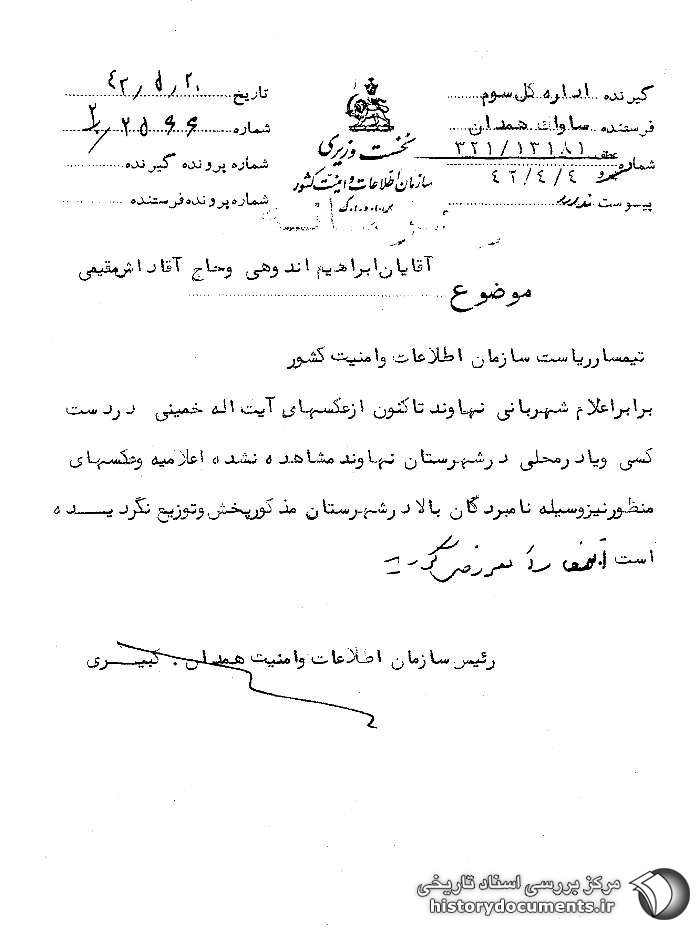 گیرنده اداره کل سوم
فرستنده ساواك همدان
شماره ۳۲۱/۱۳۱۸۱
۴۲/۴/۴
پیوست ندارد
نخست وزیری
سازمان اطلاعات و امنیت کشور
تاریخ ۴۲/۵/۲۰
شماره ۲۵۶۶
شماره پرونده گیرنده
شماره پرونده فرستنده
آقایان ابراهیم اندوهی وحاج آقاداش مقیمی
موضوع
تیمسار ریاست سازمان اطلاعات وامنیت کشور
برابر اعلام شهربانی نهاوند تاکنون از عکسهای آیت اله خمینی در دست
کسی ویادر محلی در شهرستان نهاوند مشاهده نشده اعلامیه وعکسهای
منظور نیز وسیله نامبردگان بالا در شهرستان مذکور پخش وتوزیع نگردیـــده
است
رئیس سازمان اطلاعات وامنیت همدان. کبیـــری
مرکز بررسی اسناد تاریخی
historydocuments.ir